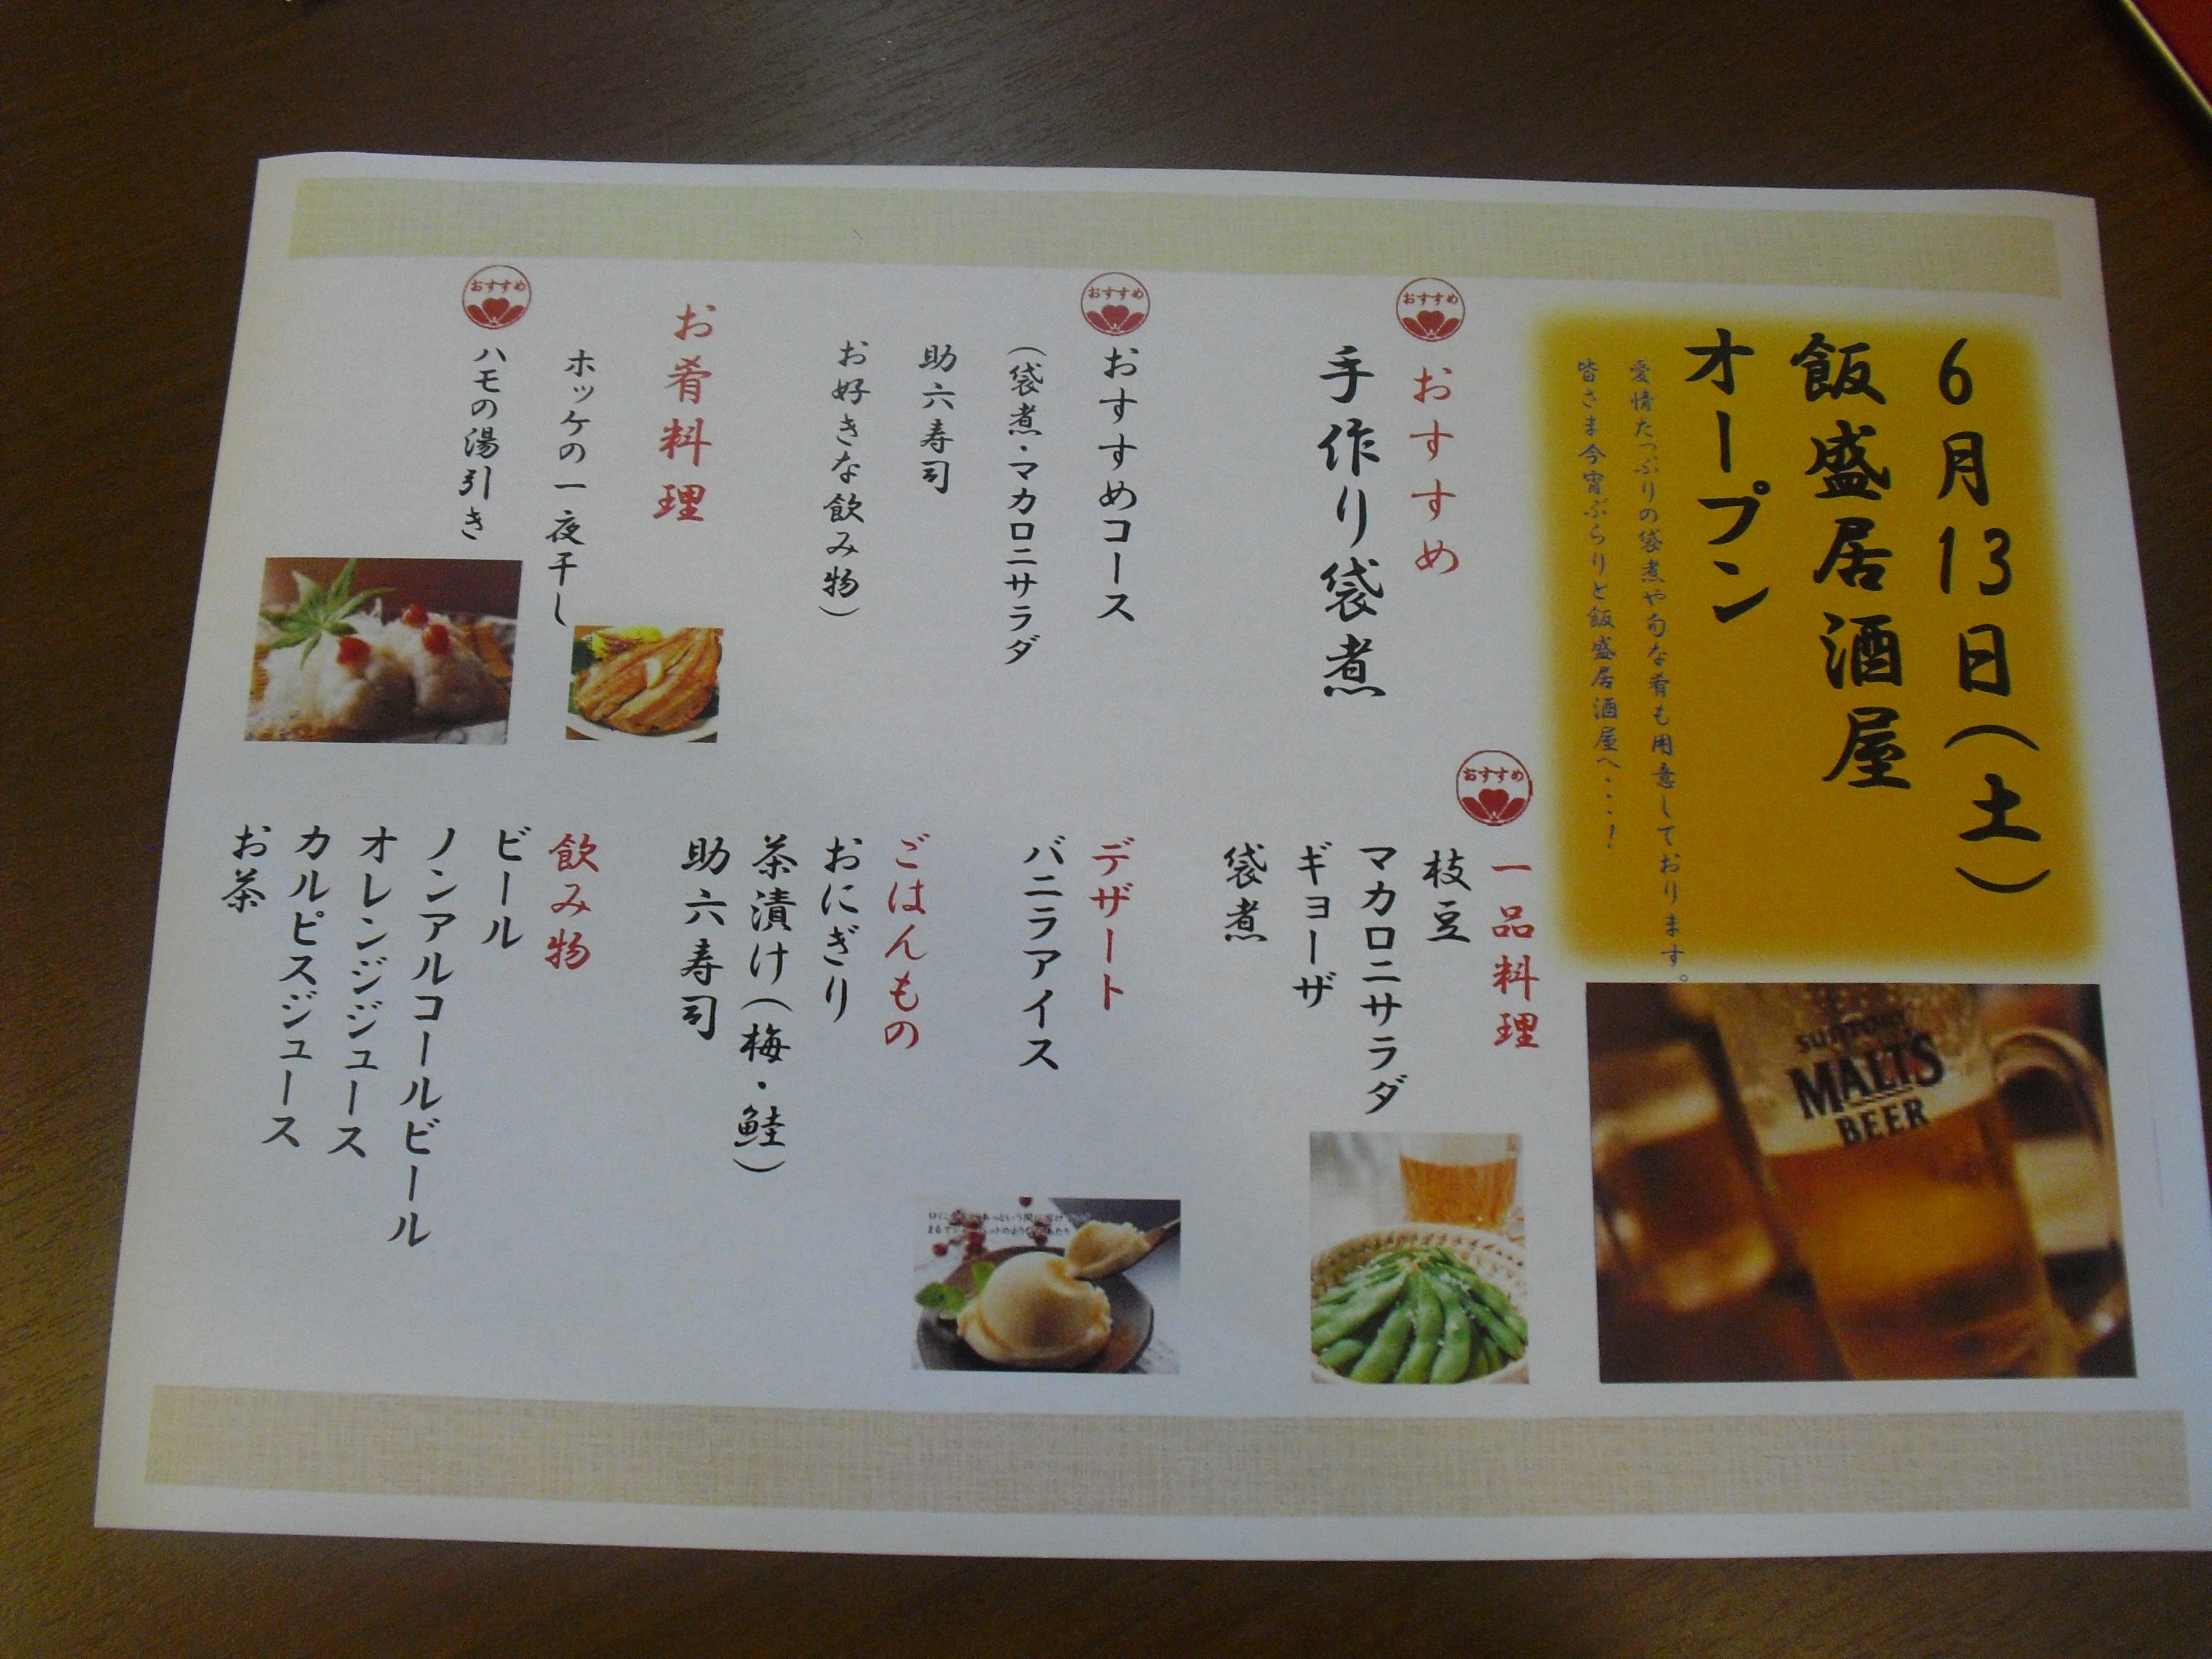 6月13日(土)
飯盛居酒屋
オープン
愛情たっぷりの袋煮や旬な肴も用意しております。
皆さま今宵ぶらりと飯盛居酒屋へ・・・!
SUNTORY
MALT'S
BEER
おすすめ
おすすめ
手作り袋煮
おすすめ
おすすめコース
(袋煮・マカロニサラダ
助六寿司
お好きな飲み物)
お肴料理
ホッケの一夜干し
おすすめ
ハモの湯引き
おすすめ
一品料理
枝豆
マカロニサラダ
ギョーザ
袋煮
デザート
バニラアイス
ごはんもの
おにぎり
茶漬け(梅・鮭)
助六寿司
飲み物
ビール
ノンアルコールビール
オレンジジュース
カルピスジュース
お茶